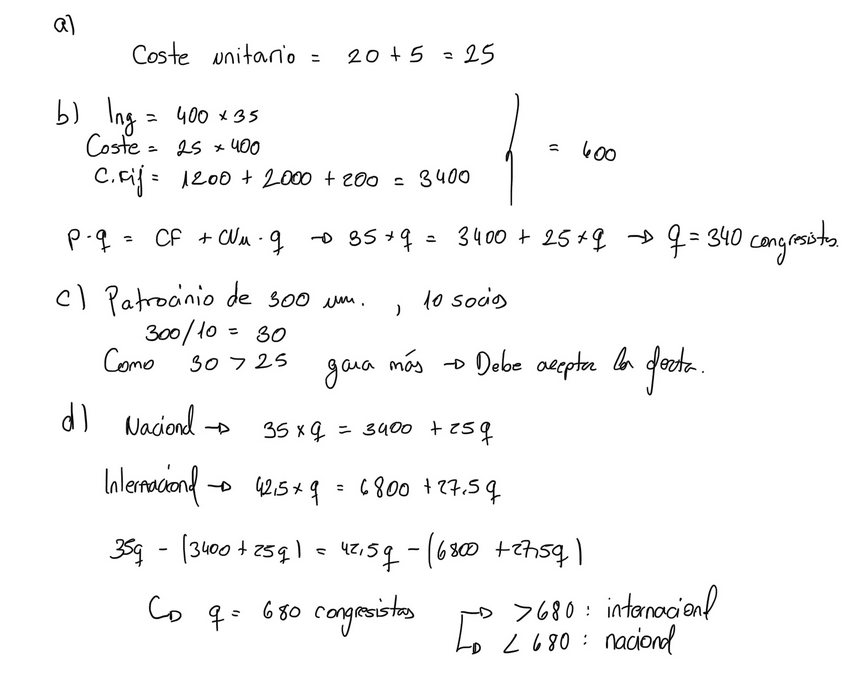 a)
Coste unitario = 20 + 5 = 25
b) Ing = 400 x 35
Coste = 25 x 400
C.Fij = 1200 + 2000 + 200 = 3400
= 600
P·q = CF + CVu·q → 35 * q = 3400 + 25 * q → q = 340 congresistas.
c) Patrocinio de 300 um. , 10 socios
300/10 = 30
Como 30 > 25 gana más → Debe aceptar la oferta.
d) Nacional → 35 x q = 3400 + 25q
Internacional → 42,5 x q = 6800 + 27.5q
35q - (3400 + 25q) = 42,5q - (6800 + 27,5q)
q = 680 congresistas → >680 : internacional
→ < 680 : nacional